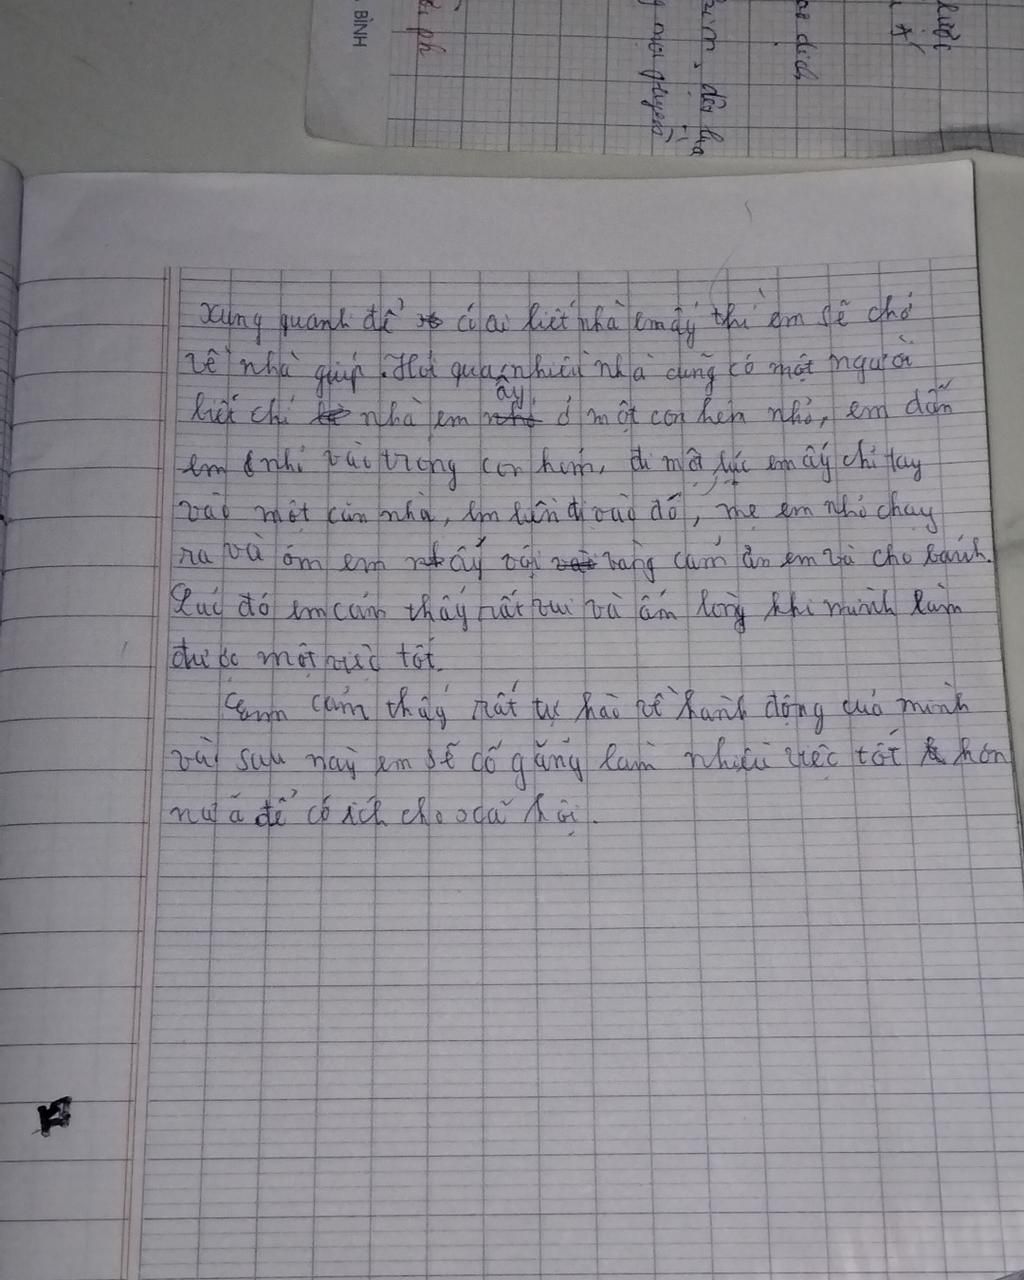 BÌNH
xung quanh để có ai biết nhà em ấy thì em sẽ chở
về nhà giúp. Hỏi qua nhiều nhà cũng có một người
biết chỉ nhà em ấy ở một con hẻm nhỏ, em dẫn
em nhỏ vào trong con hẻm, đi một lúc em ấy chỉ tay
vào một căn nhà, em liền đi vào đó, mẹ em nhỏ chạy
ra và ôm em ấy vội vàng cảm ơn em và cho bánh.
Lúc đó em cảm thấy rất vui và ấm lòng khi mình làm
được một việc tốt.
Em cảm thấy rất tự hào về hành động của mình
và sau này em sẽ cố gắng làm nhiều việc tốt hơn
nữa để có ích cho xã hội.